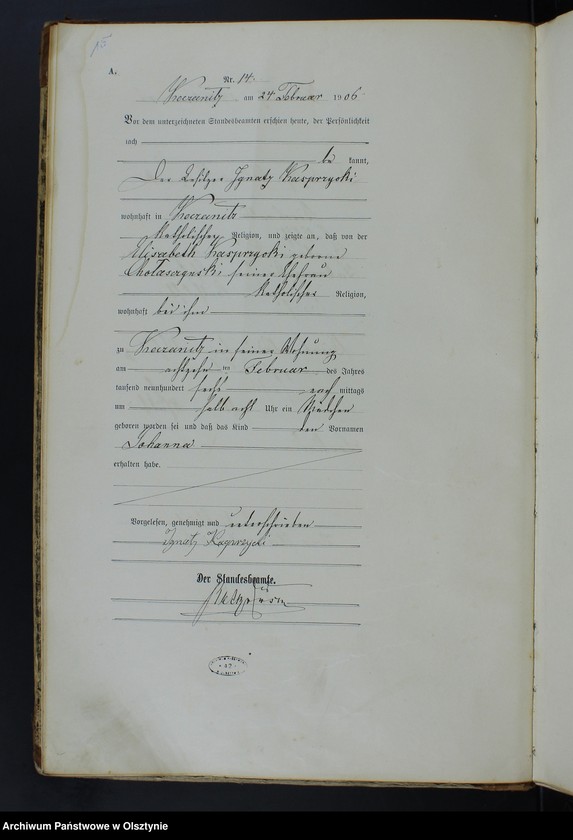 15
A.
Nr. 14.
Kazanitz am 24 Februar 1906
Vor dem unterzeichneten Standesbeamten erschien heute, der Persönlichkeit
nach
be kannt,
Der Besitzer Ignatz Kasprzycki
wohnhaft in Kazanitz
katholischer Religion, und zeigte an, daß von der
Elisabeth Kasprzycki geborene
seiner Ehefrau
katholischer Religion,
wohnhaft bei ihm
zu Kazanitz in seiner Wohnung
am achtzehn ten Februar des Jahres
tausend neunhundert sechs nach mittags
um halb acht Uhr ein Mädchen
geboren worden sei und daß das Kind den Vornamen
Johanna
erhalten habe.
Vorgelesen, genehmigt und unterschrieben
Ignatz Kasprzycki
Der Standesbeamte.
Archiwum Państwowe w Olsztynie